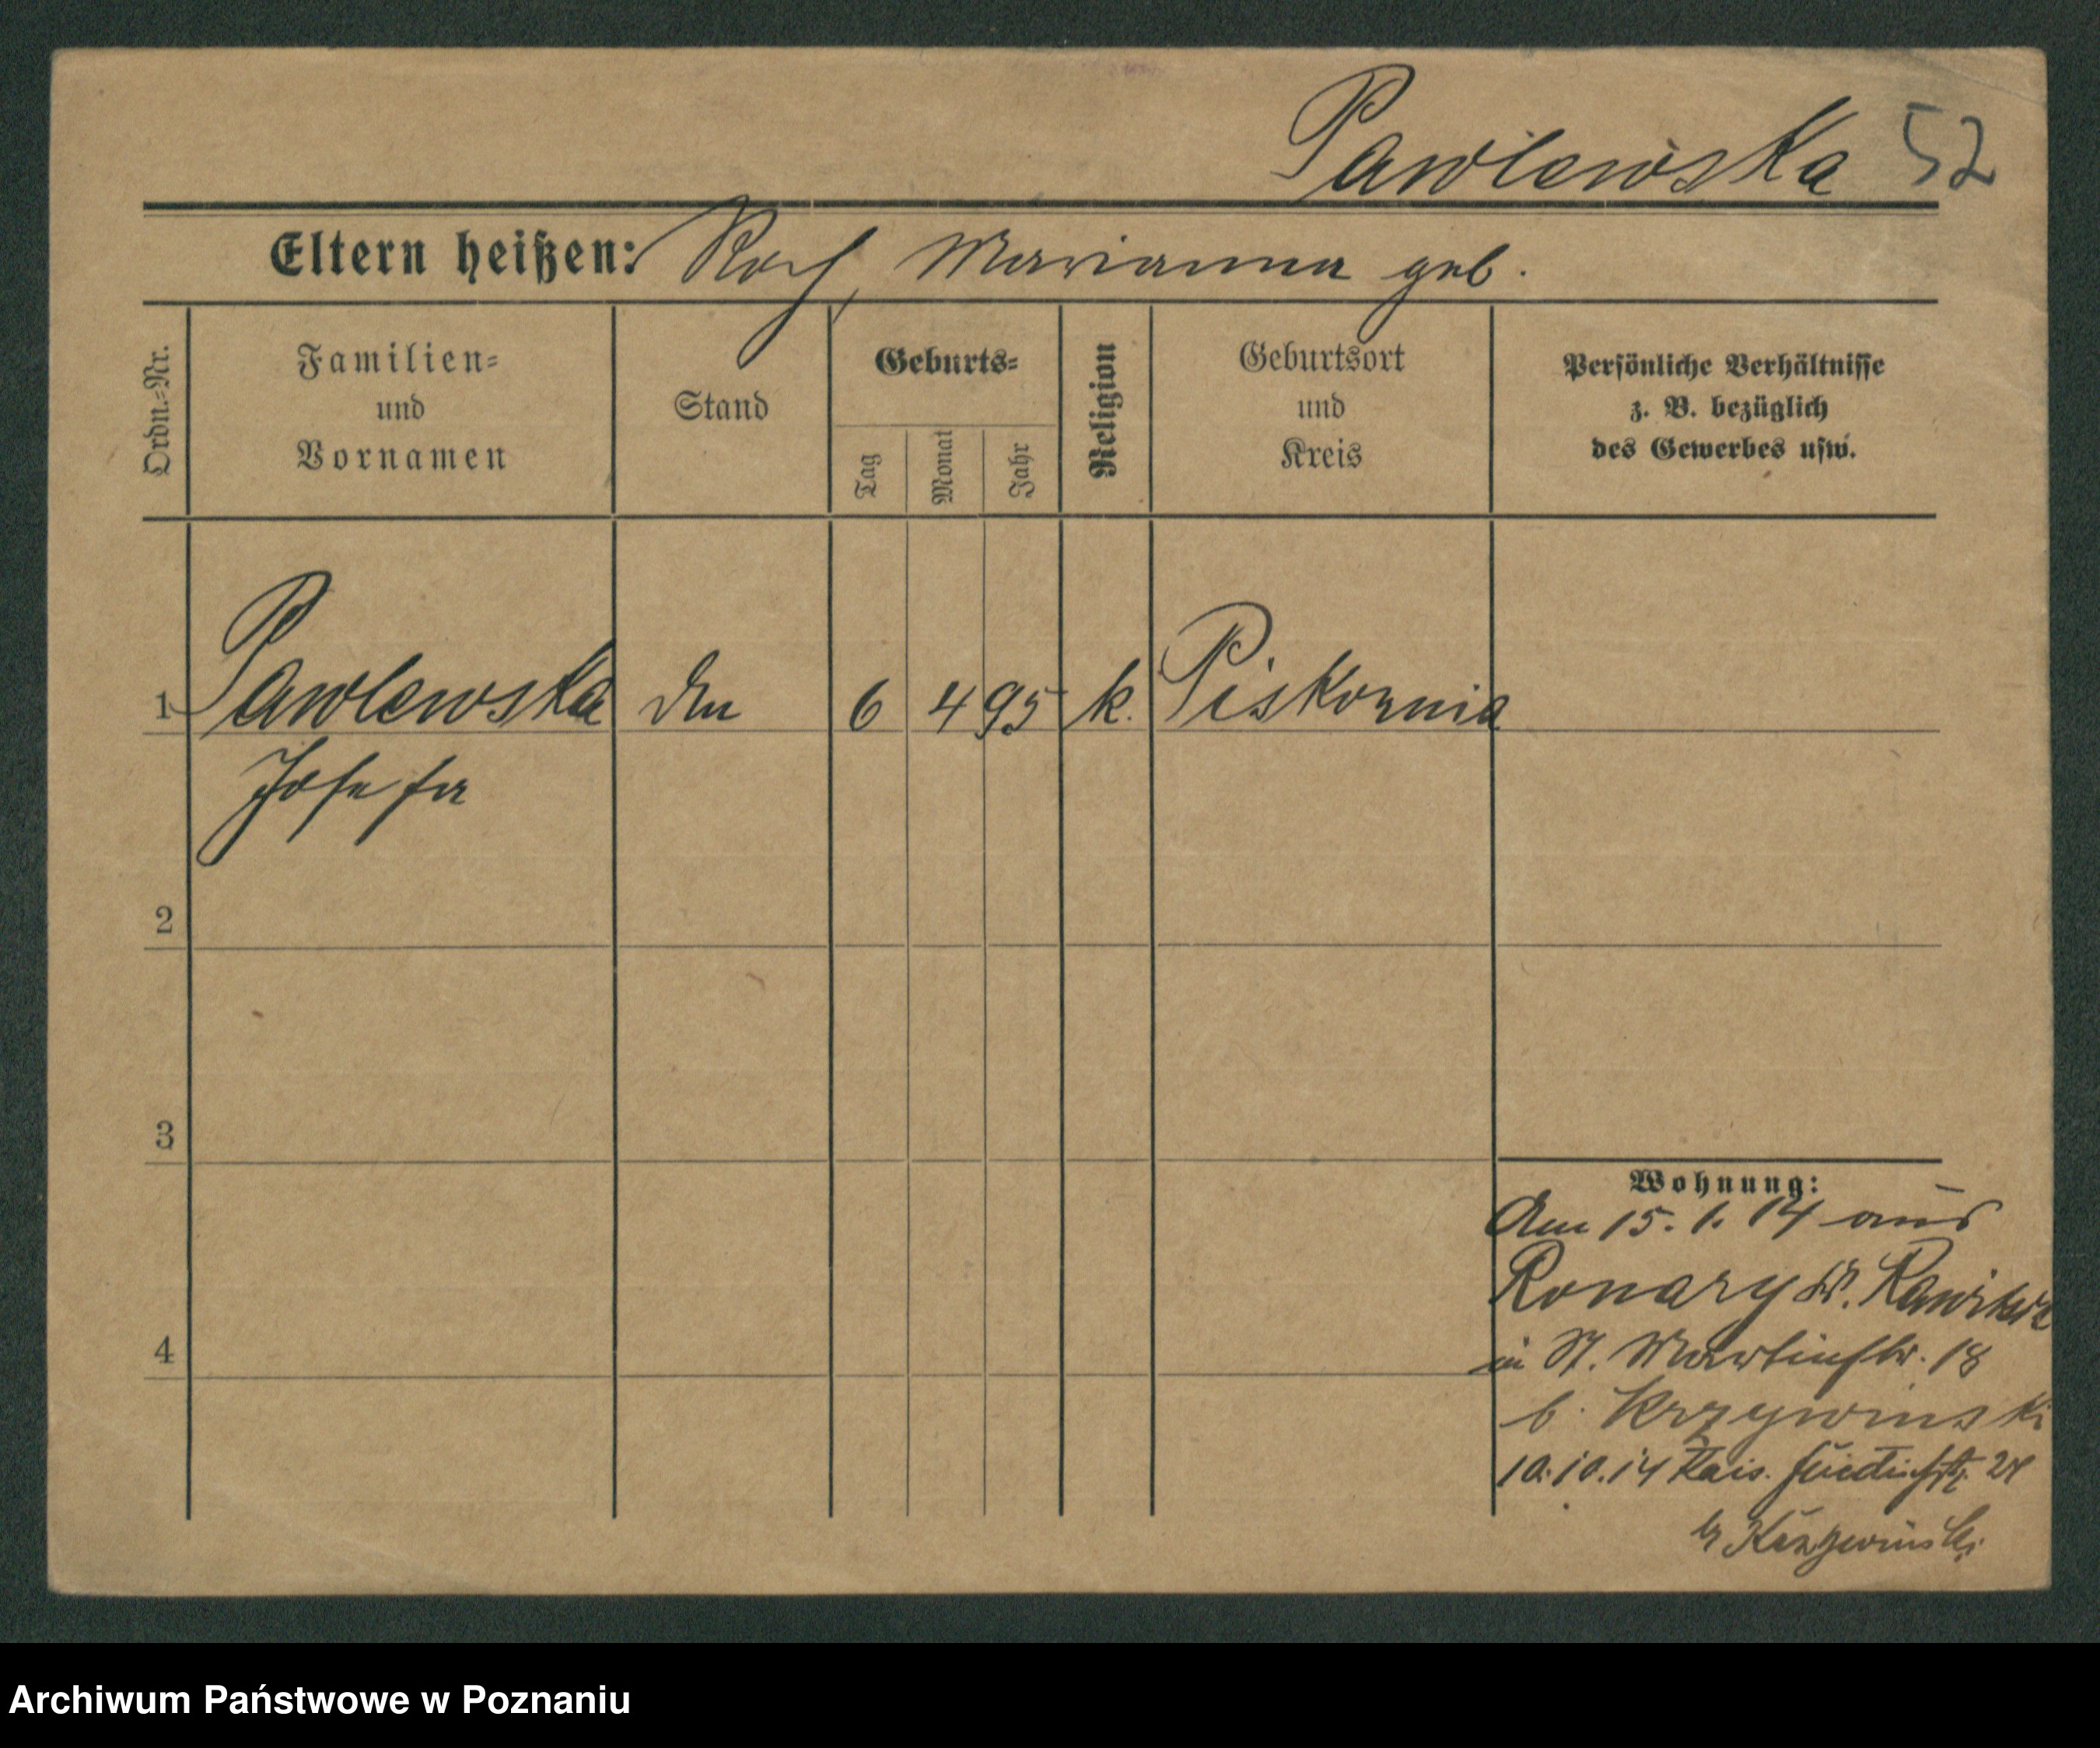 Pawlewska 52
Eltern heißen: Marianna geb.
Ordn.-Nr.
Familien-
und
Vornamen
Stand
Geburts-
Tag
Monat
Jahr
Religion
Geburtsort
und
Kreis
Persönliche Verhältnisse
z. B. bezüglich
des Gewerbes usw.
1 Pawlewska 6 4 95 k. Piskornia
Josefa
2
3
4
Wohnung:
Am 15. 1. 14 aus
Konary Kr. Rawitsch
in St. Martinstr. 18
b. Krzywinski
10.10.14 Kais. Friedrichstr. 24
b Krzywinski
Archiwum Państwowe w Poznaniu